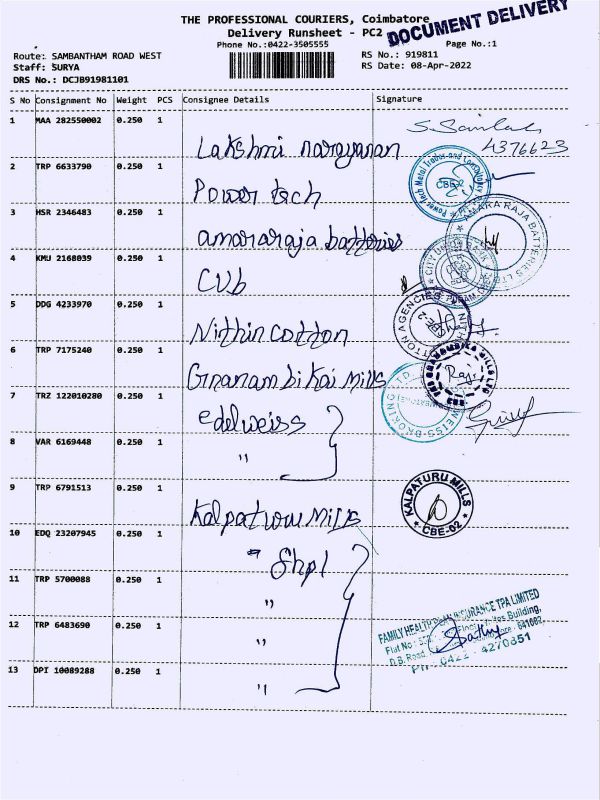 THE PROFESSIONAL COURIERS, Coimbatore
Delivery Runsheet - PC2
DOCUMENT DELIVERY
Phone No.:0422-3505555
Page No.:1
Route: SAMBANTHAM ROAD WEST
RS No.: 919811
Staff: SURYA
RS Date: 08-Apr-2022
DRS No.: DCJB91981101
S No Consignment No Weight PCS Consignee Details Signature
1 MAA 282550002 0.250 1 Lakshmi narayanan
4376623
2 TRP 6633790 0.250 1 Power tech
CBE-2
3 HSR 2346483 0.250 1 amararaja batteries
AMARA RAJA BATTERIES
4 KMU 2168039 0.250 1 CUb
CITY UNION BANK
5 DDG 4233970 0.250 1 Nithin cotton
COTTON AGENCIES
6 TRP 7175240 0.250 1 Gnanambikai mills
Raji
7 TRZ 122010280 0.250 1 edelweiss
WEISS BROKING LTD
8 VAR 6169448 0.250 1 "
9 TRP 6791513 0.250 1 Kalpaturu mills
KALPATURU MILLS
CBE-02
10 EDQ 23207945 0.250 1 " Fhpl
11 TRP 5700088 0.250 1 "
12 TRP 6483690 0.250 1 "
FAMILY HEALTH PLAN INSURANCE TPA LIMITED
Flat No Building,
D.B. Road, 641002
PH: 0422 - 4270851
13 DPI 10089288 0.250 1 "